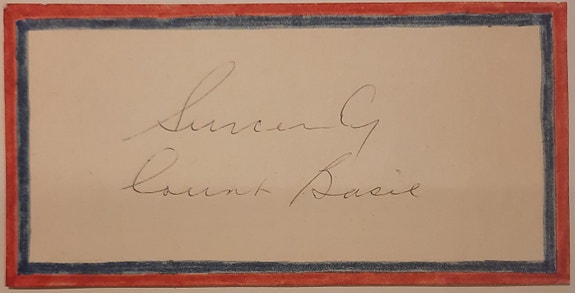 Sincerely
Count Basie